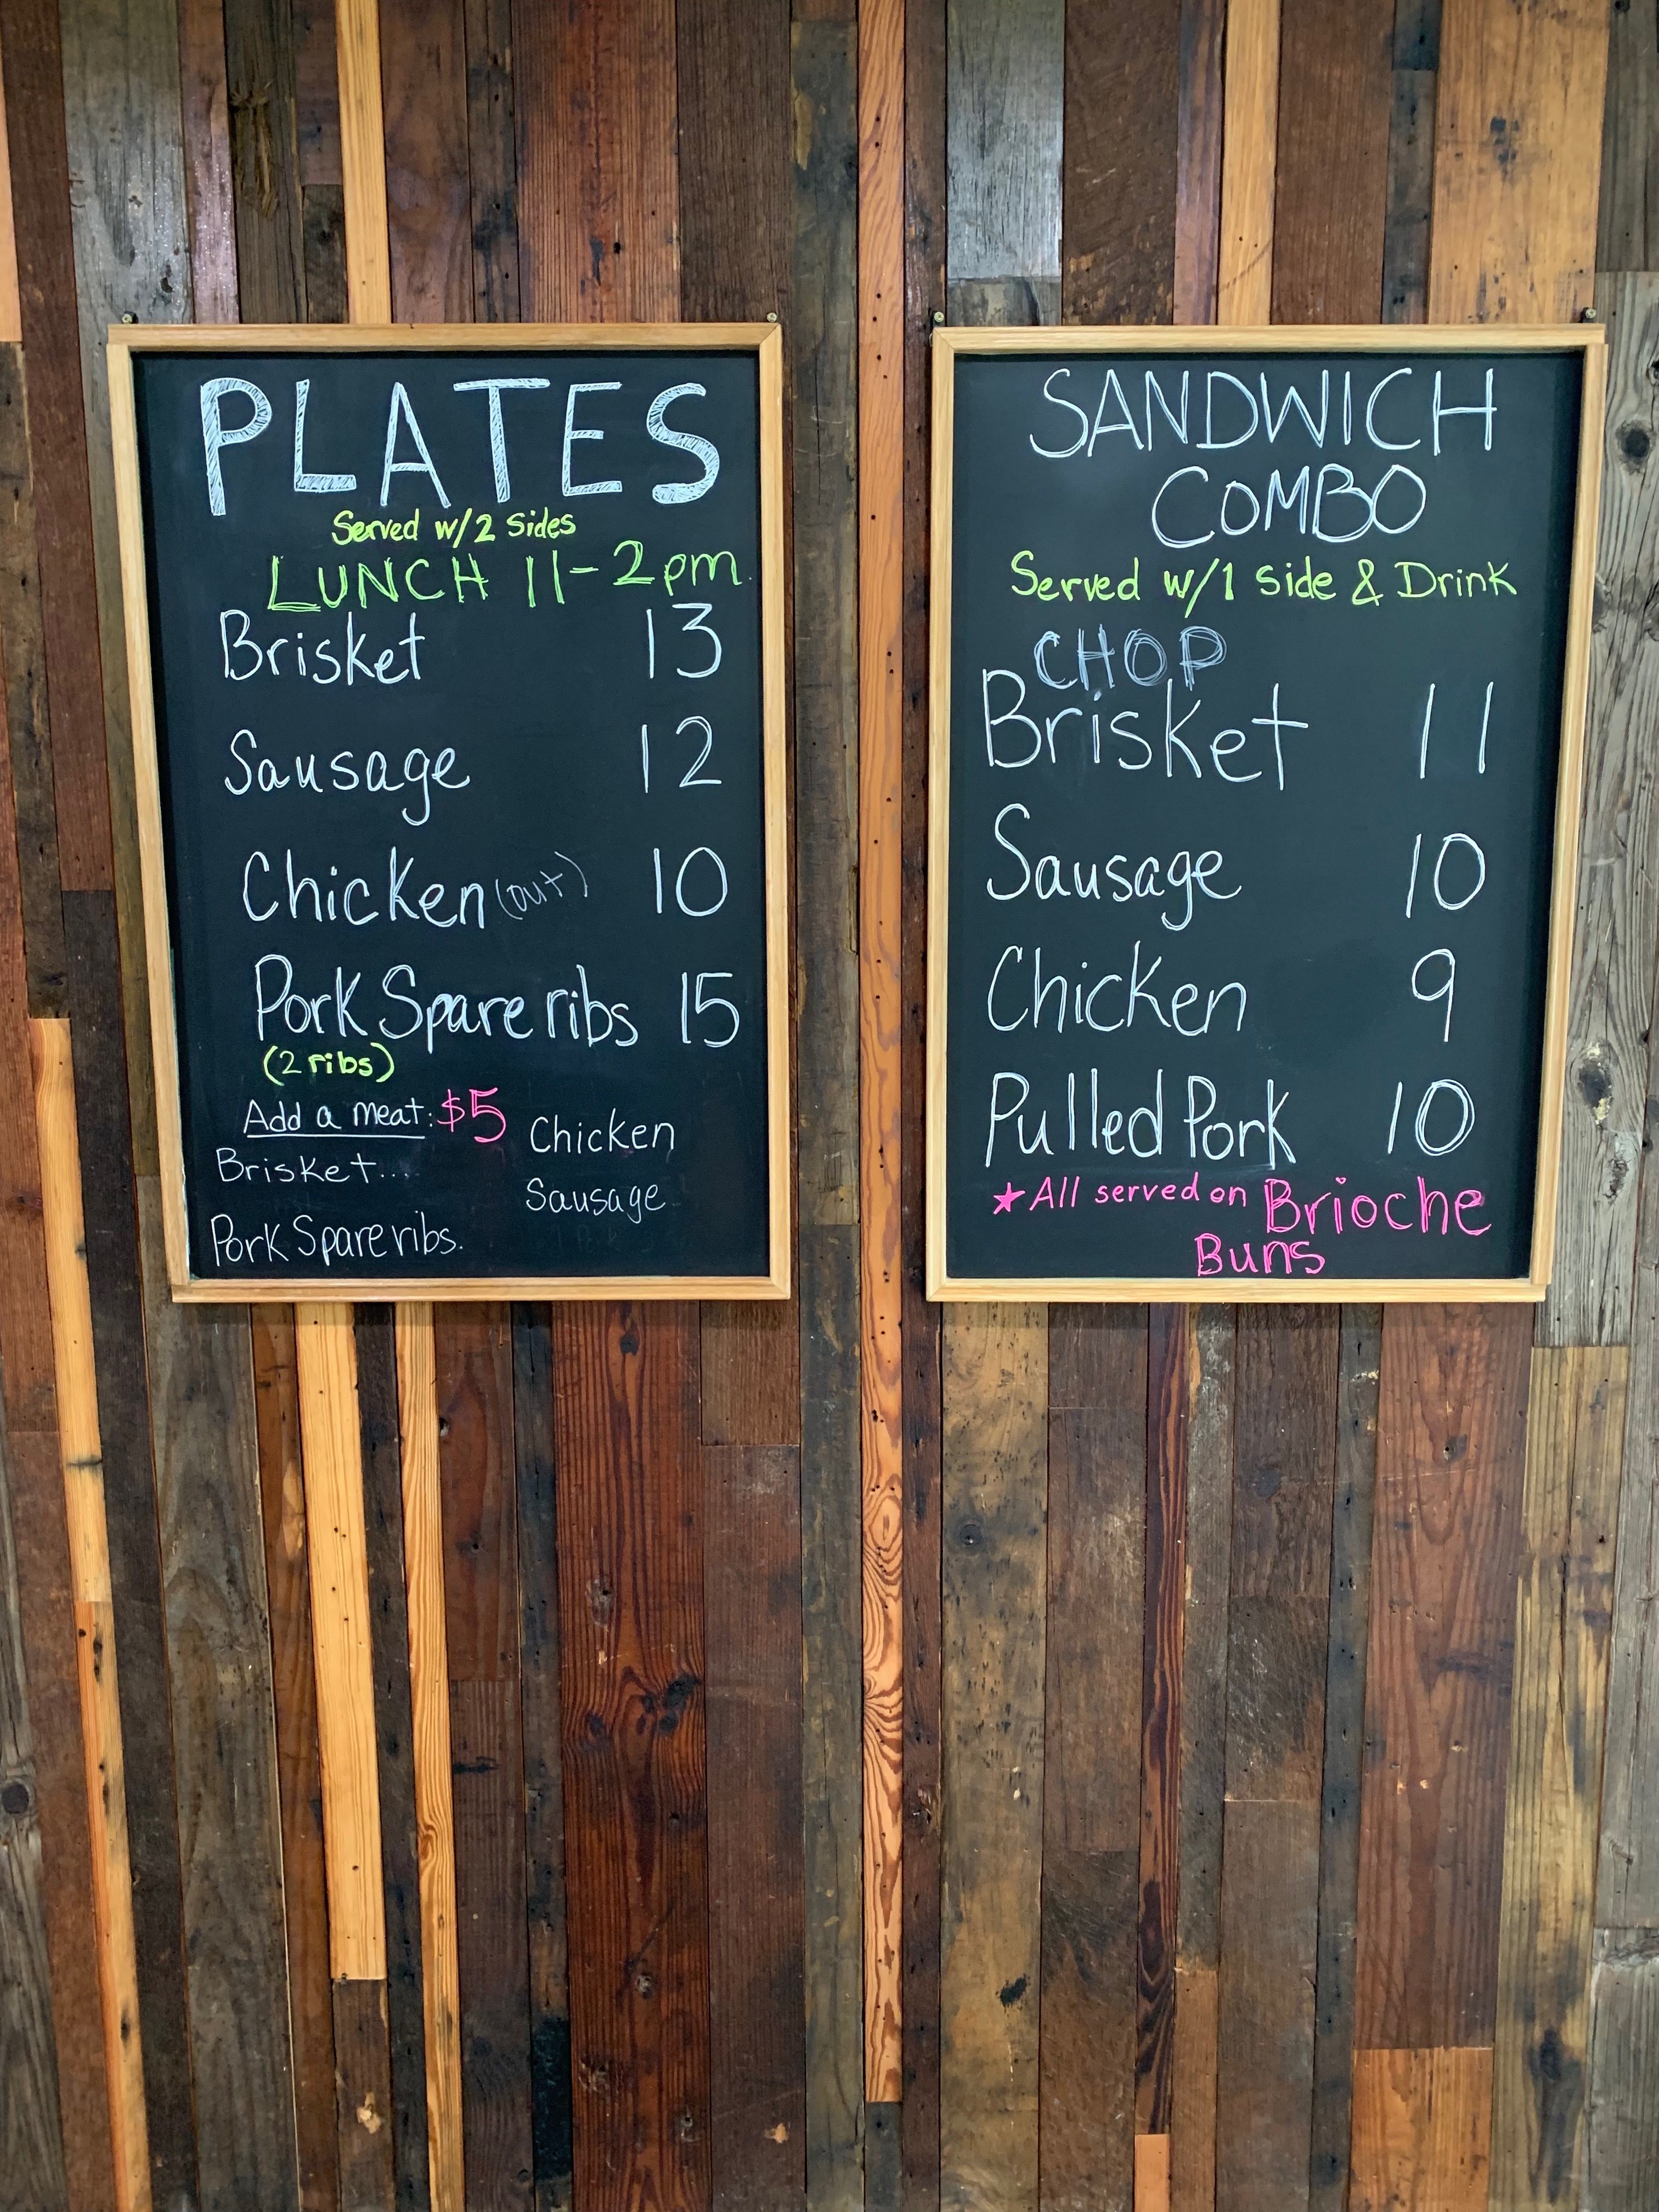 PLATES
Served w/2 Sides
LUNCH 11-2pm.
Brisket 13
Sausage 12
Chicken (out) 10
Pork Spare ribs 15
(2 ribs)
Add a meat: $5
Chicken
Brisket....
Sausage
Pork Spare ribs.
SANDWICH
COMBO
Served w/1 side & Drink
CHOP
Brisket 11
Sausage 10
Chicken 9
Pulled Pork 10
★ All served on Brioche
Buns